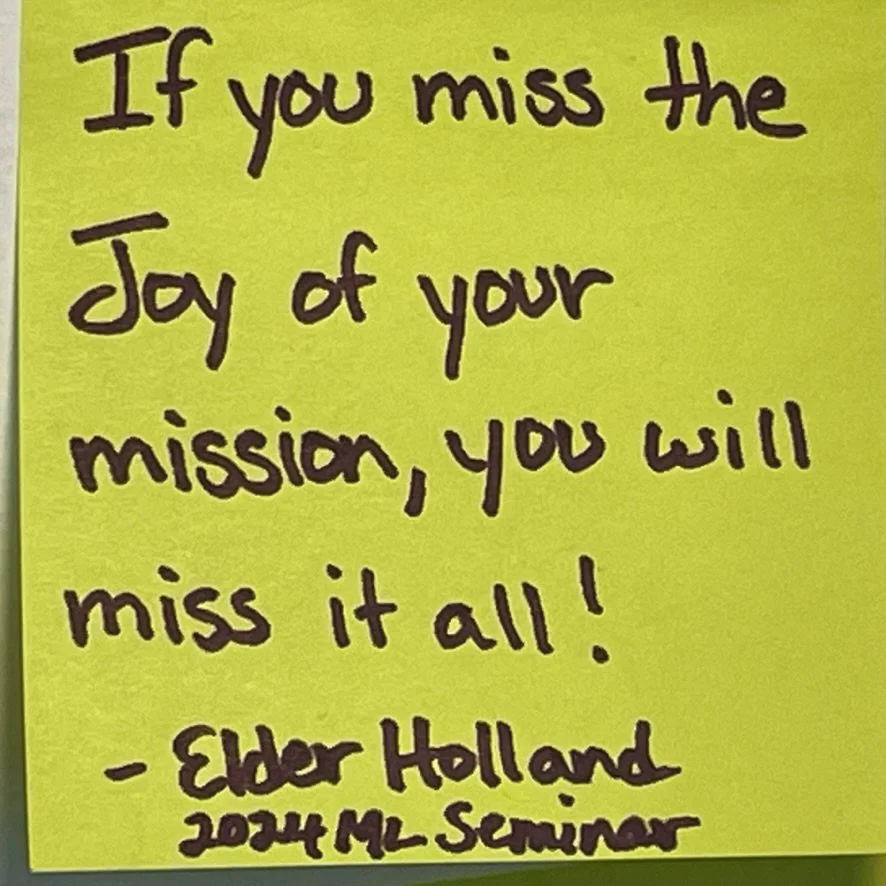 If you miss the
Joy of your
mission, you will
miss it all!
- Elder Holland
2024 ML Seminar